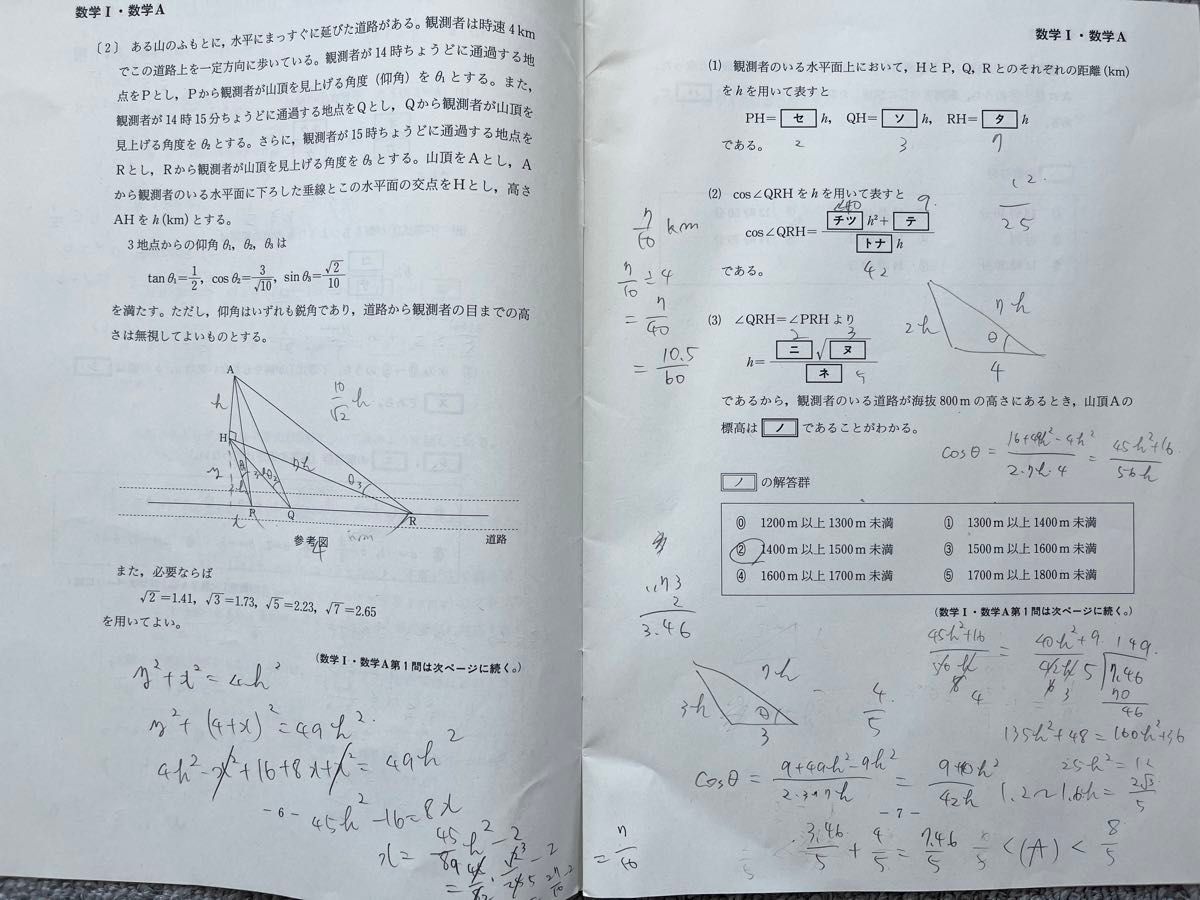 数学Ⅰ・数学A
〔2〕 ある山のふもとに，水平にまっすぐに延びた道路がある。観測者は時速4km
でこの道路上を一定方向に歩いている。観測者が14時ちょうどに通過する地
点をPとし，Pから観測者が山頂を見上げる角度（仰角）をθ₁とする。また，
観測者が14時15分ちょうどに通過する地点をQとし，Qから観測者が山頂を
見上げる角度をθ₂とする。さらに，観測者が15時ちょうどに通過する地点を
Rとし，Rから観測者が山頂を見上げる角度をθ₃とする。山頂をAとし，A
から観測者のいる水平面に下ろした垂線とこの水平面の交点をHとし，高さ
AHをh(km)とする。
3地点からの仰角θ₁，θ₂，θ₃は
tanθ₁=1/2, cosθ₂=3/√10, sinθ₃=√2/10
を満たす。ただし，仰角はいずれも鋭角であり，道路から観測者の目までの高
さは無視してよいものとする。
A
h
10/√2 h
H
7h
θ₂
θ₃
P
Q
R
参考図
4
道路
また，必要ならば
√2=1.41, √3=1.73, √5=2.23, √7=2.65
を用いてよい。
(数学Ⅰ・数学A第1問は次ページに続く。)
y²+x²=4h²
y²+(4+x)²=49h²
4h²-x²+16+8x+x²=49h²
-6-
45h²-16=8x
数学Ⅰ・数学A
(1) 観測者のいる水平面上において，HとP，Q，Rとのそれぞれの距離(km)
をhを用いて表すと
PH=セ h, QH=ソ h, RH=タ h
である。
2 3 7
(2) cos∠QRHをhを用いて表すと
40 9
cos∠QRH=(チツ h²+テ)/(トナ h)
である。
42
12/25
7/10 km
7/10÷4
=7/40
=10.5/60
(3) ∠QRH=∠PRHより
2 3
h=ニ√ヌ/ネ
5
7h
2h
θ
4
であるから，観測者のいる道路が海抜800mの高さにあるとき，山頂Aの
標高はノであることがわかる。
cosθ=(16+49h²-4h²)/(2・7h・4)=(45h²+16)/56h
ノの解答群
⓪ 1200m以上1300m未満
① 1300m以上1400m未満
② 1400m以上1500m未満
③ 1500m以上1600m未満
④ 1600m以上1700m未満
⑤ 1700m以上1800m未満
(数学Ⅰ・数学A第1問は次ページに続く。)
3.46
(45h²+16)/56h=(40h²+9)/42h
7h
3h
θ
3
4/5
135h²+48=160h²+36
25h²=12
cosθ=(9+49h²-9h²)/(2・3・7h)=(9+40h²)/42h
h=2√3/5
-7-
3.46/5+4/5=7.46/5
<(A)<8/5